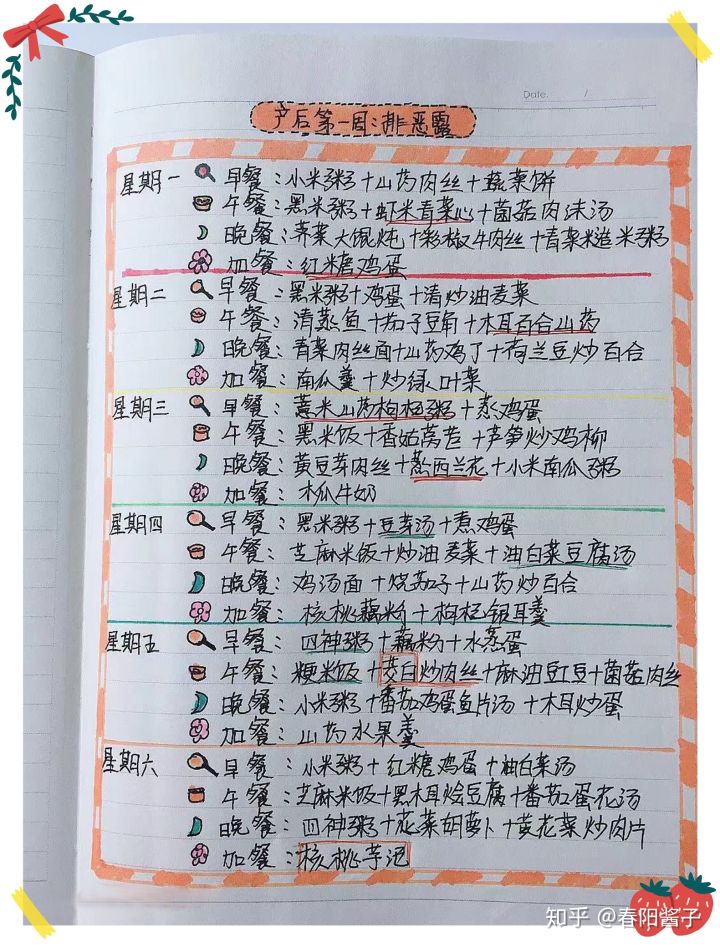 Date. /
产后第一周:排恶露
星期一 早餐:小米粥+山药肉丝+蔬菜饼
午餐:黑米粥+虾米青菜心+菌菇肉沫汤
晚餐:荠菜大馄炖+彩椒牛肉丝+青菜糙米粥
加餐:红糖鸡蛋
星期二 早餐:黑米粥+鸡蛋+清炒油麦菜
午餐:清蒸鱼+茄子豆角+木耳百合山药
晚餐:青菜肉丝面+山药鸡丁+荷兰豆炒百合
加餐:南瓜羹+炒绿叶菜
星期三 早餐:薏米山药枸杞粥+蒸鸡蛋
午餐:黑米饭+香菇莴苣+芦笋炒鸡柳
晚餐:黄豆芽肉丝+蒸西兰花+小米南瓜粥
加餐:木瓜牛奶
星期四 早餐:黑米粥+豆芽汤+煮鸡蛋
午餐:芝麻米饭+炒油麦菜+油白菜豆腐汤
晚餐:鸡汤面+烧茄子+山药炒百合
加餐:核桃藕粉+枸杞银耳羹
星期五 早餐:四神粥+藕粉+水蒸蛋
午餐:粳米饭+茭白炒肉丝+麻油豇豆+菌菇肉丝
晚餐:小米粥+番茄鸡蛋鱼片汤+木耳炒蛋
加餐:山药水果羹
星期六 早餐:小米粥+红糖鸡蛋+油白菜汤
午餐:芝麻米饭+黑木耳烩豆腐+番茄蛋花汤
晚餐:四神粥+花菜胡萝卜+黄花菜炒肉片
加餐:核桃芋泥
知乎 @春阳酱子